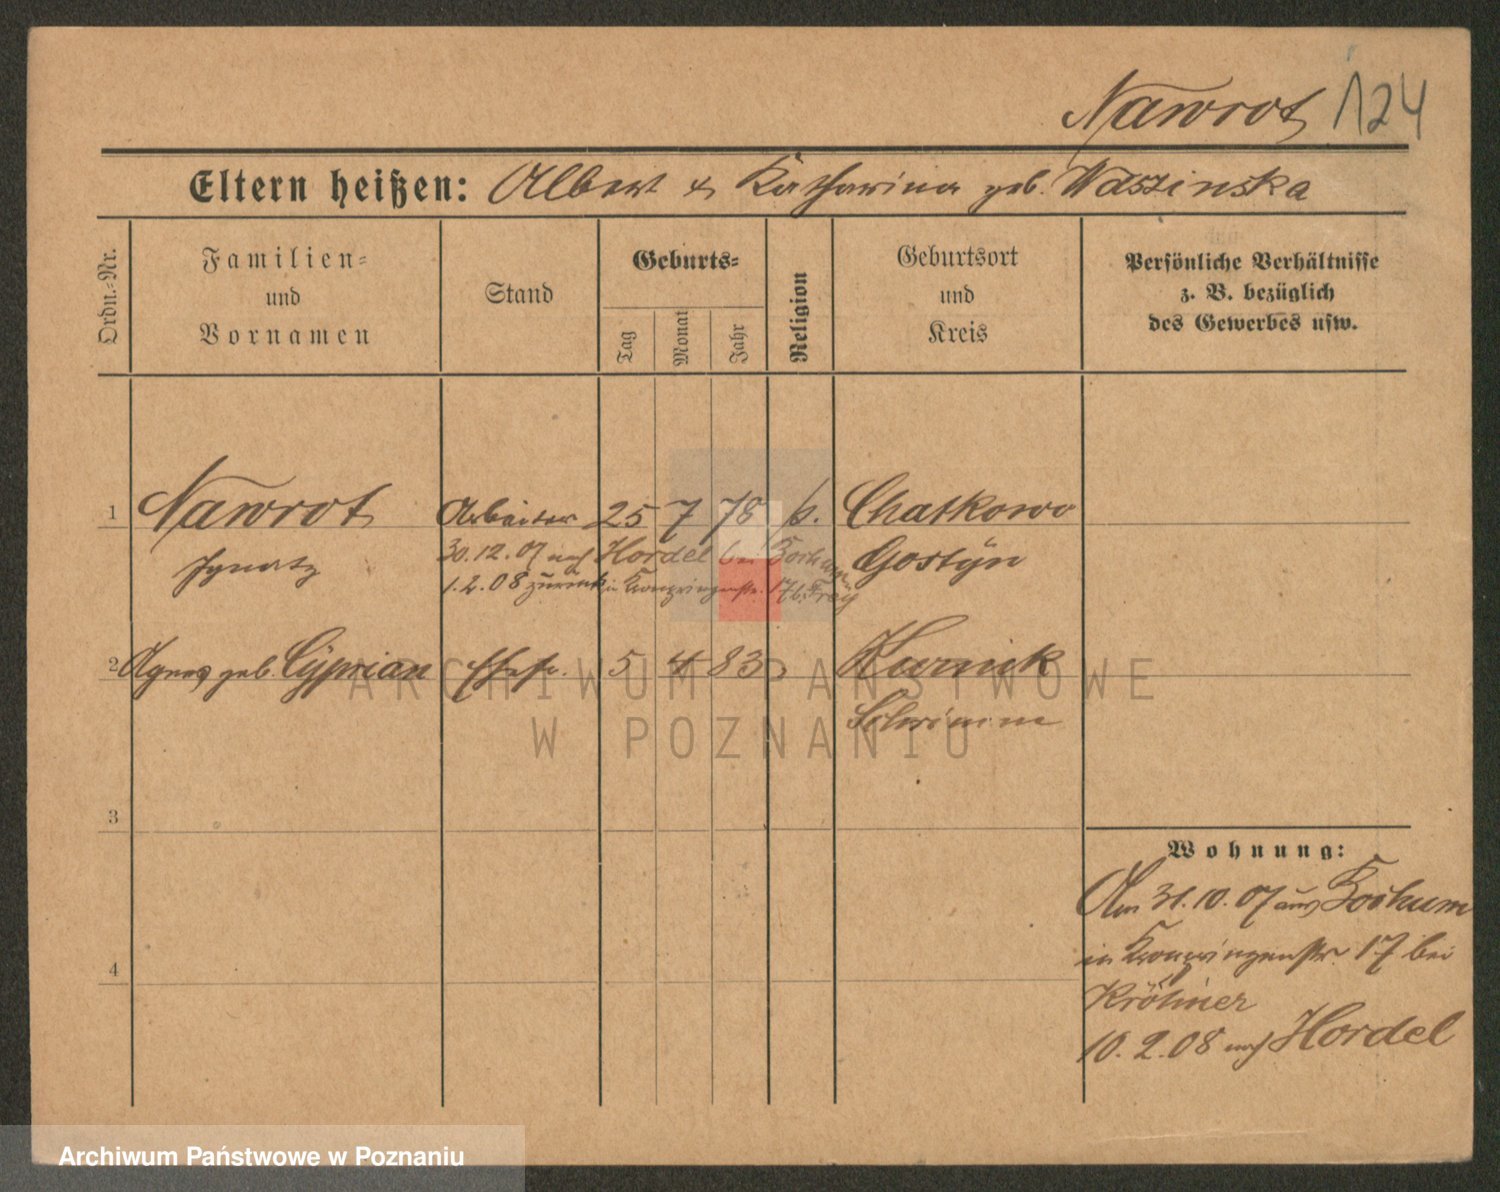 Nawrot 124
Eltern heißen: Albert & Katharina geb. Waszinska
Ordn.-Nr.
Familien-
und
Vornamen
Stand
Geburts-
Tag
Monat
Jahr
Religion
Geburtsort
und
Kreis
Persönliche Verhältnisse
z. B. bezüglich
des Gewerbes usw.
1 Nawrot Arbeiter 25 7 78 k. Chatkowo
Ignatz 30.12.07 nach Hordel bei Bochum Gostÿn
1.2.08 zurück in Kronprinzenstr. 17 b. Frey
2 Agnes geb. Cÿprian Ehefr. 5 4 83 " Kurnik
Schrimm
3
Wohnung:
Am 31.10.07 aus Bochum
in Kronprinzenstr. 17 bei
4
10.2.08 nach Hordel
ARCHIWUM PAŃSTWOWE
W POZNANIU
Archiwum Państwowe w Poznaniu